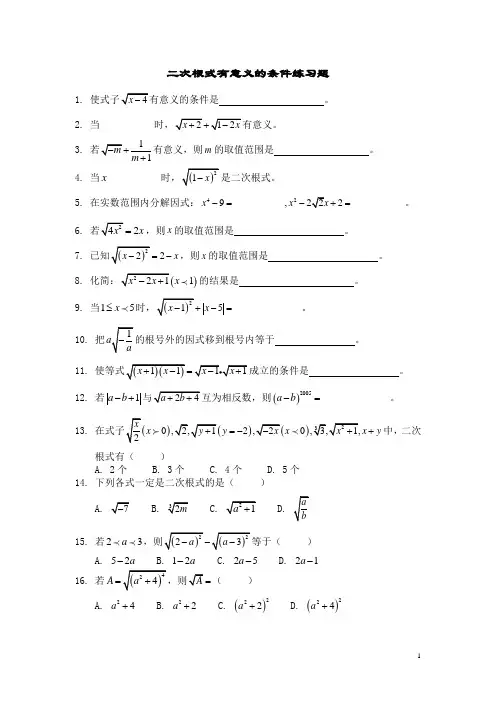 二次根式有意义的条件练习题
1. 使式子√(x-4)有意义的条件是 。
2. 当__________时,√(x+2)+√(1-2x)有意义。
3. 若√(-m)+1/(m+1)有意义,则m的取值范围是 。
4. 当x__________时,√((1-x)²)是二次根式。
5. 在实数范围内分解因式:x⁴-9=__________,x²-2√2x+2=__________。
6. 若√(4x²)=2x,则x的取值范围是 。
7. 已知√((x-2)²)=2-x,则x的取值范围是 。
8. 化简:√(x²-2x+1)(x≺1)的结果是 。
9. 当1≤x≺5时,√((x-1)²)+|x-5|=_____________。
10. 把a√(-1/a)的根号外的因式移到根号内等于 。
11. 使等式√((x+1)(x-1))=√(x-1)·√(x+1)成立的条件是 。
12. 若|a-b+1|与√(a+2b+4)互为相反数,则(a-b)²⁰⁰⁵=_____________。
13. 在式子√(x/2)(x≻0),√2,√(y+1)(y=-2),√(-2x)(x≺0),∛3,√(x²+1),x+y中,二次
根式有( )
A. 2个 B. 3个 C. 4个 D. 5个
14. 下列各式一定是二次根式的是( )
A. √(-7) B. ∛(2m) C. √(a²+1) D. √(a/b)
15. 若2≺a≺3,则√((2-a)²)-√((a-3)²)等于( )
A. 5-2a B. 1-2a C. 2a-5 D. 2a-1
16. 若A=√((a²+4)⁴),则√A=( )
A. a²+4 B. a²+2 C. (a²+2)² D. (a²+4)²
1